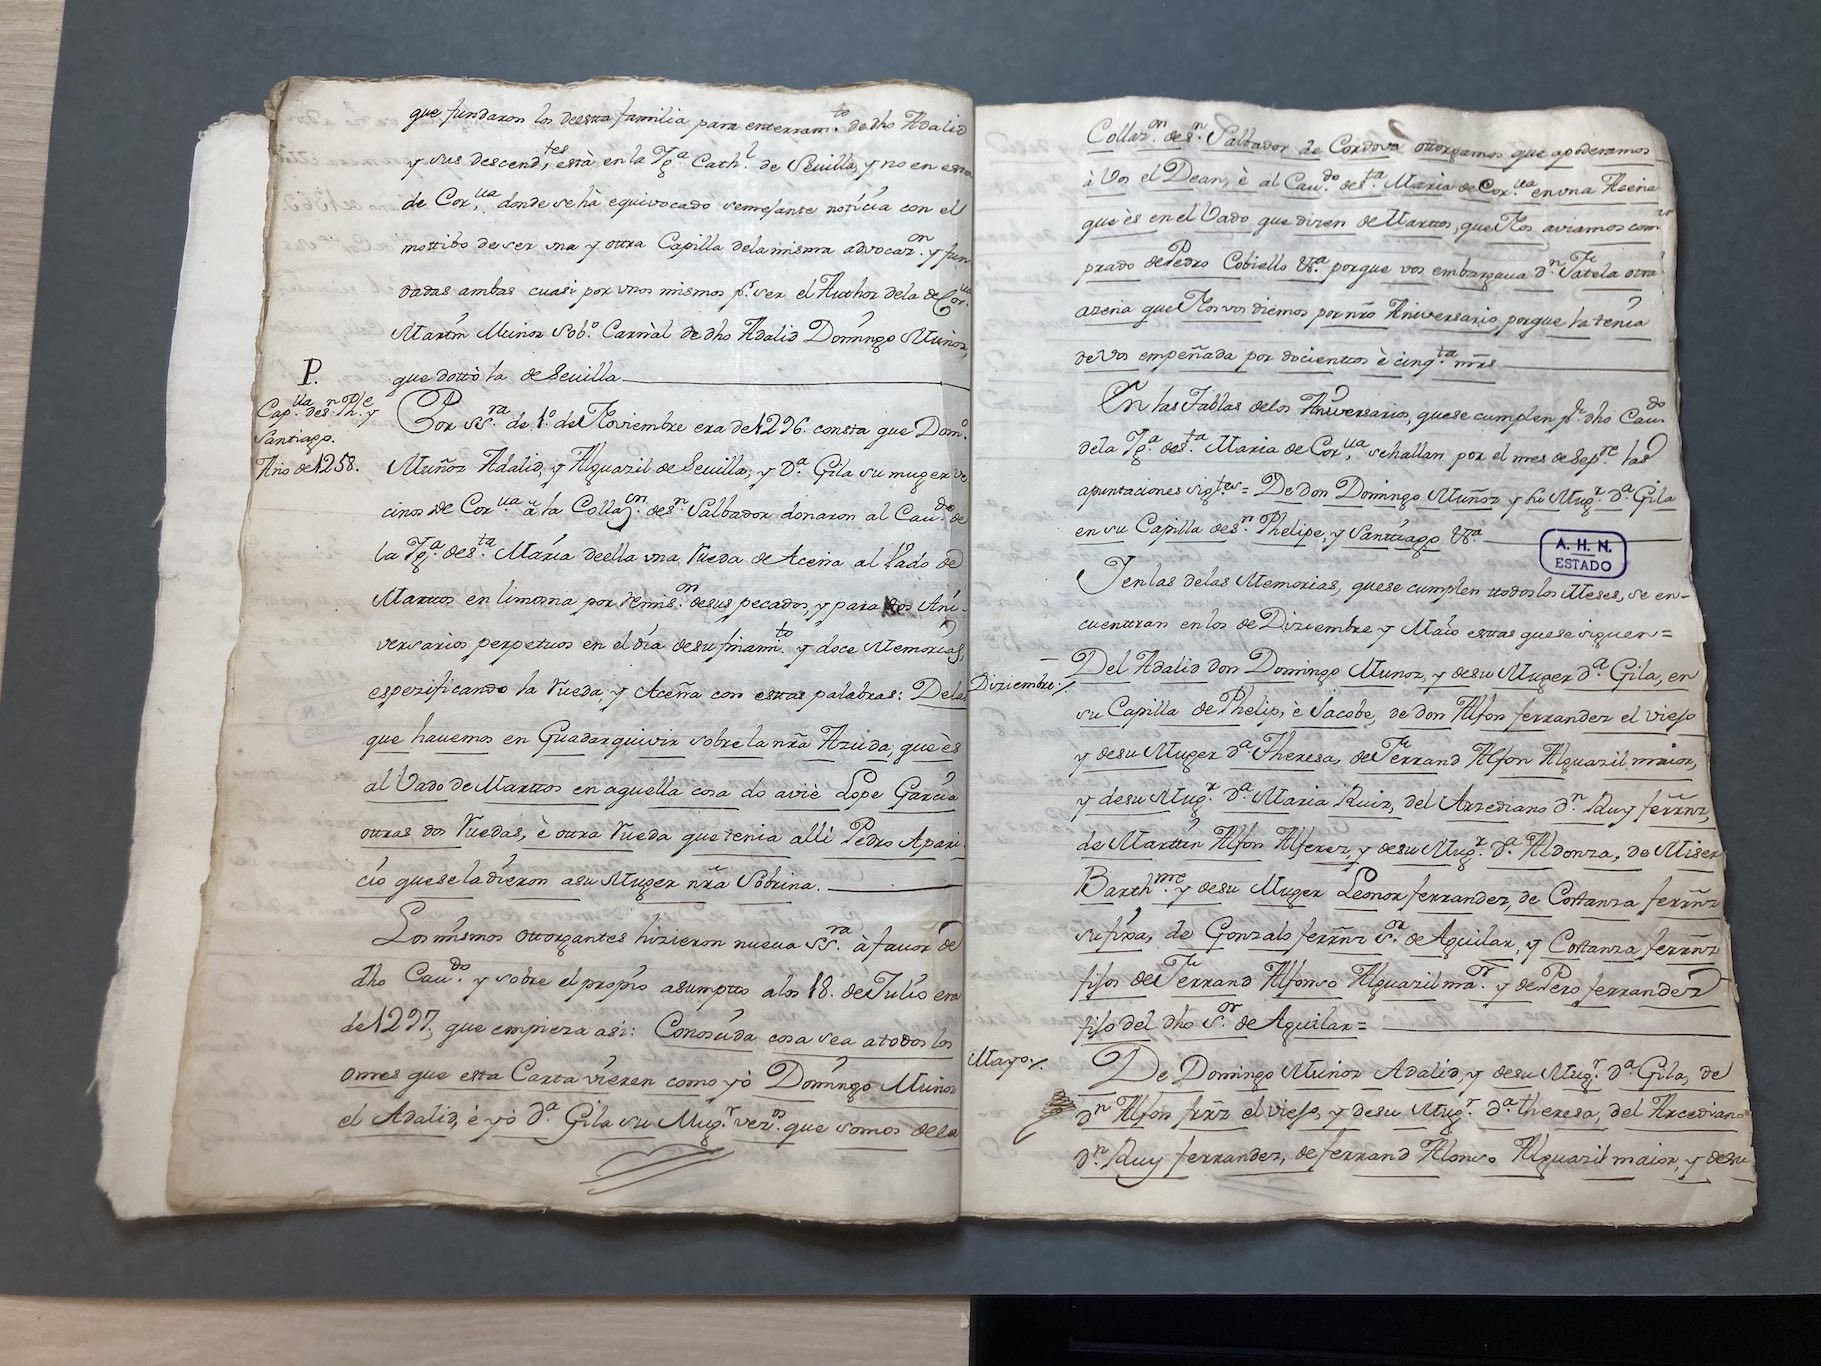 que fundaron los deesta familia para enterram.to de dho Adalid
y sus descend.tes està en la Ygª Cath.l de Sevilla, y no en esta
de Cor.ua donde se hà equivocado semejante notícia con el
mottibo de ser una y ottra Capilla dela misma advocaz.on y fun
dadas ambas cuasi por unos mismos p.r ser el Author dela de Cor.ua
Martín Muñoz Sob.º Carnàl de dho Adalid Domíngo Muñòz,
P. que dottò la de Sevilla
Cap.lla de S.n Ph.e y
Santiago.
Año de 1258.
Por SS.ra de 1.º de Noviembre era de 1296. consta que Dom.º
Muñoz Adalid, y Alguazil de Sevilla, y D.ª Gila su muger ve
cinos de Cor.ua à la Collaz.on de S.n Salbador donaron al Cau.do de
la Yg.ª de S.ta María deella una Rueda de Aceña al Vado de
Marttos en limosna por remis.on de sus pecados, y para dos Ani-
versarios perpetuos en el día de su finam.to y doce Memorias,
espezificando la rueda, y Aceña con estas palabras: Delas
que havemos en Guadarquivir sobre la nrã Azuda, que ès
al Vado de Marttos en aquella cosa dó aviè Lope García
ottras dos Ruedas, è ottra Rueda que tenia alli Pedro Apari
cio que se la dieron a su Muger nrã Sobrina.
Los mismos ottorgantes hizieron nueva SS.ra à favor de
dho Cau.do y sobre el propio asumptto a los 18. de Julio era
de 1297, que empieza asi: Conosuda cosa sea a todos los
omes que esta Carta vieren como yò Domíngo Muñoz
el Adalid, è yò D.ª Gila su Mug.r vez.os que somos dela
Collaz.on de S.n Salbador de Cordova ottorgamos que apoderamos
à Vos el Dean, è al Cau.do de S.ta Maria de Cor.ua en una Aceña
que ès en el Vado que dizen de Marttos, que Nos aviamos com
prado de Pedro Cobiello &.ª porque vos embargaua d.n Tatela otra
azeña que Nos vos diemos por nrõ Aniversario, porque la tenía
de Vos empeñada por docientos è cinq.ta mrs
En las Tablas delos Aniversarios, que se cumplen p.r dho Cau.do
dela Yg.ª de S.ta Maria de Cor.ua se hallan por el mes de Sep.re las
apuntaciones sig.tes = De Don Domingo Muñoz y su Mug.r D.ª Gila
en su Capilla de S.n Phelipe, y Santtiago &.ª
A. H. N.
ESTADO
Y en las delas Memorias, que se cumplen ttodos los Meses, se en-
cuenttran en los de Diziembre y Maio esttas que se siguen=
Diziembre./. Del Adalid don Domingo Munoz, y de su Muger d.ª Gila, en
su Capilla de Phelip, è Jacobe, de don Alfon ferrandez el viejo
y de su Muger d.ª Theresa, de Ferrand Alfon Alguazil maior,
y de su Mug.r d.ª Maria Ruiz, del Arzediano d.n Ruy ferrñz,
de Marttín Alfon Alferez, y de su Mug.r d.ª Aldonza, de Miser
Barth.me y de su Muger Leonor ferrandez, de Costanza ferrñz
su fija, de Gonzalo ferrñz S.or de Aguilar, y Costanza ferrñz
fijos de Ferrand Alfonso Alguazil ma.or y de Pero ferrandez
fijo del dho S.or de Aguilar=
Mayo./. De Domingo Muñoz Adalid, y de su Mug.r d.ª Gila, de
d.n Alfon frrz el viejo, y de su Mug.r d.ª theresa, del Arcediano
d.n Ruy ferrandez, de ferrand Alonso Alguazil maior, y de su